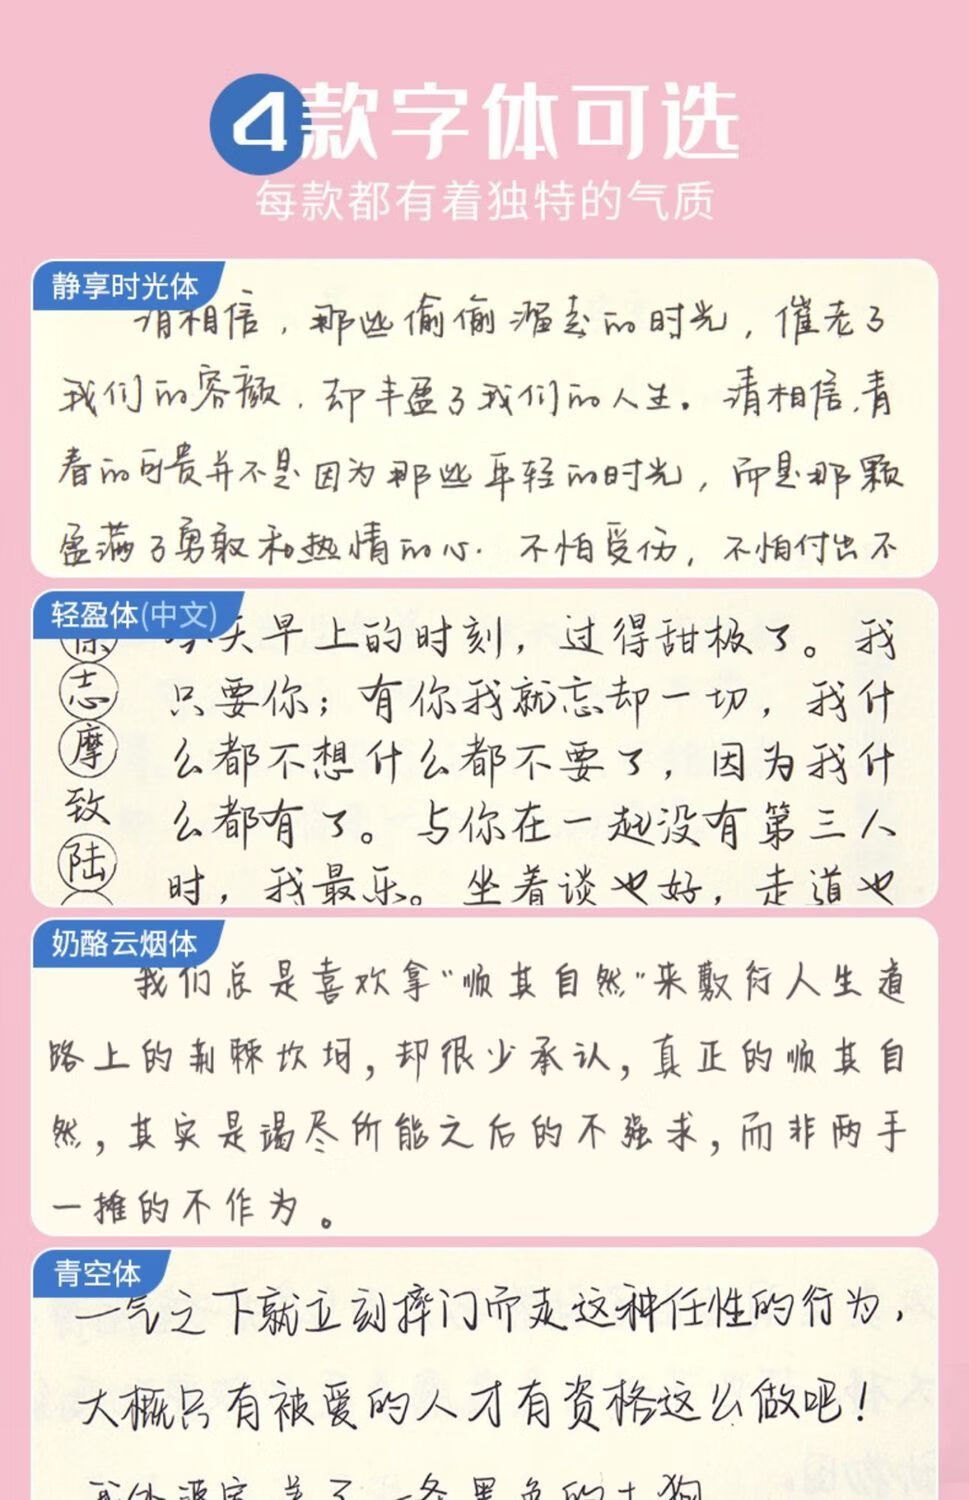 4款字体可选
每款都有着独特的气质
静享时光体
请相信，那些偷偷溜走的时光，催老了
我们的容颜，却丰盈了我们的人生。请相信，青
春的可贵并不是因为那些年轻的时光，而是那颗
盈满了勇敢和热情的心．不怕受伤，不怕付出不
轻盈体(中文)
徐
志
摩
致
陆
今天早上的时刻，过得甜极了。我
只要你；有你我就忘却一切，我什
么都不想什么都不要了，因为我什
么都有了。与你在一起没有第三人
时，我最乐。坐着谈也好，走道也
奶酪云烟体
我们总是喜欢拿"顺其自然"来敷衍人生道
路上的荆棘坎坷，却很少承认，真正的顺其自
然，其实是竭尽所能之后的不强求，而非两手
一摊的不作为。
青空体
一气之下就立刻摔门而走这种任性的行为，
大概只有被爱的人才有资格这么做吧！
我外婆家养了一条黑色的土狗